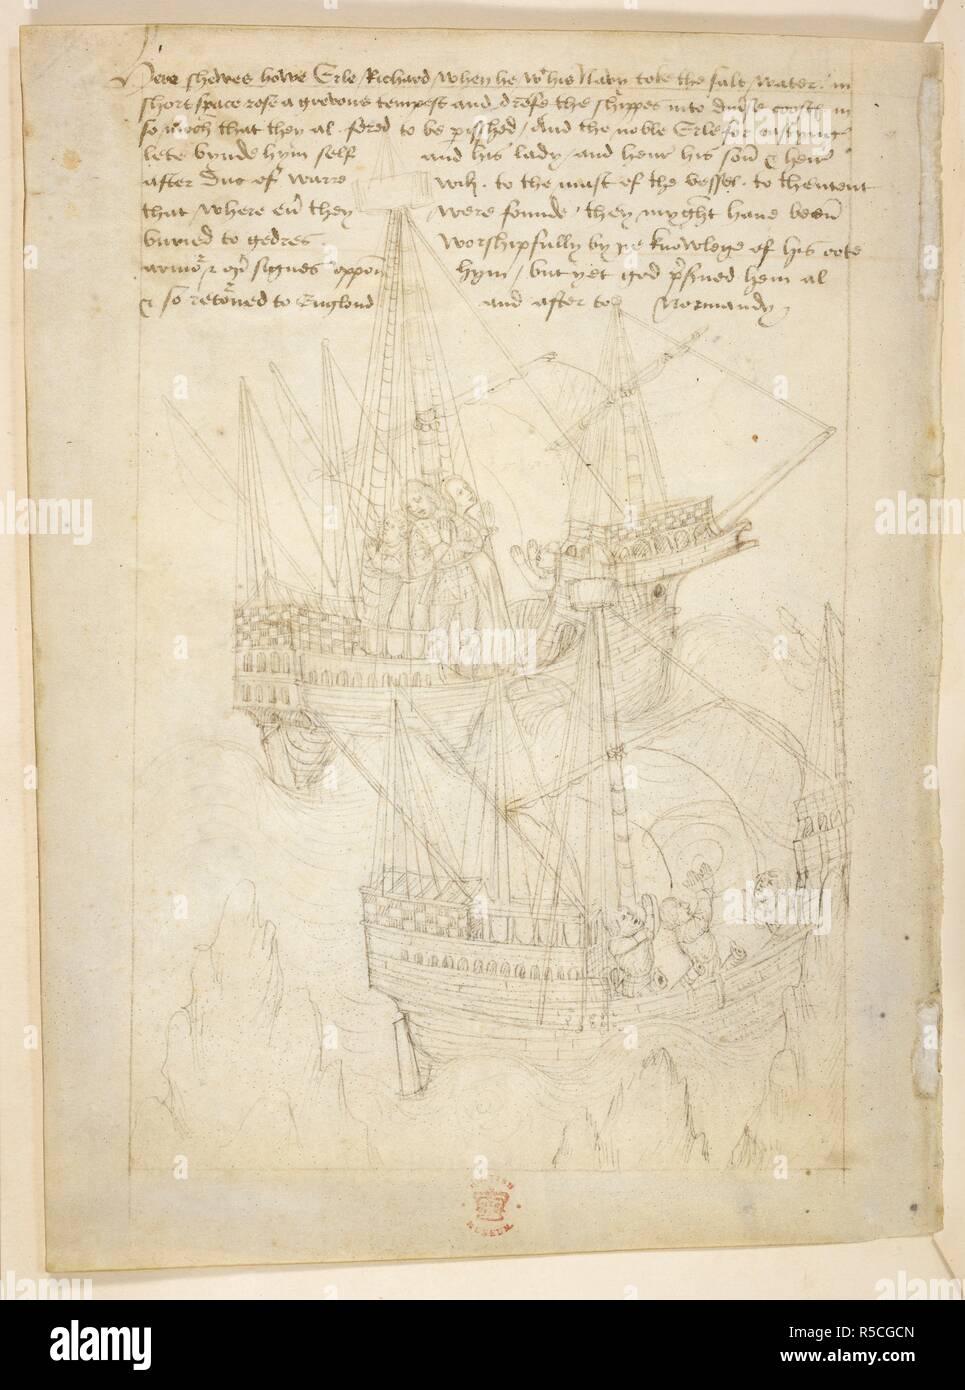 Here shewes howe Erle Richard when he wt his Navy toke the salt water. in
short space rose a grevous tempest and drofe the shippes into diuse coostes in
so moch that they al fered to be pisshed / And the noble Erle for castyng
lete bynde hym self and his lady / and henr his son̄ & heir
after Duc of warre wik. to the mast of the vessel. to thentent
that / where eu̅ they were founde / they myght have been̄
buried to gedres worshipfully by ye knowlege of his cote
armor & op̅ signes oppon hym / but yet god p̅sued hem al
& so retoned to Englond and after to Normandy
BRITISH
MUSEUM
alamy
Image ID: R5CGCN
www.alamy.com